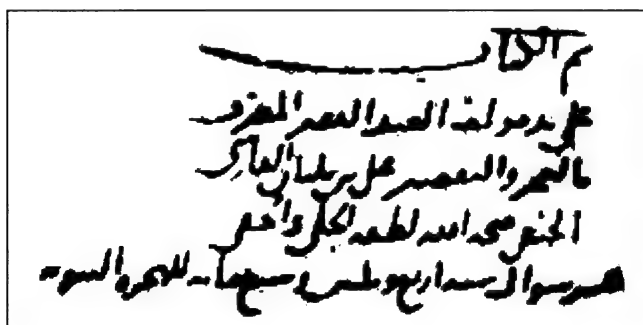 تم الكتاب
على يد مولفه العبد الفقير المعترف
بالعجز والتقصير علي بن بلبان الفارسي
الحنفي منحه الله لطفه الجلي والخفي
شوال سنه اربع وثلثين وسبع مايه للهجره النبويه